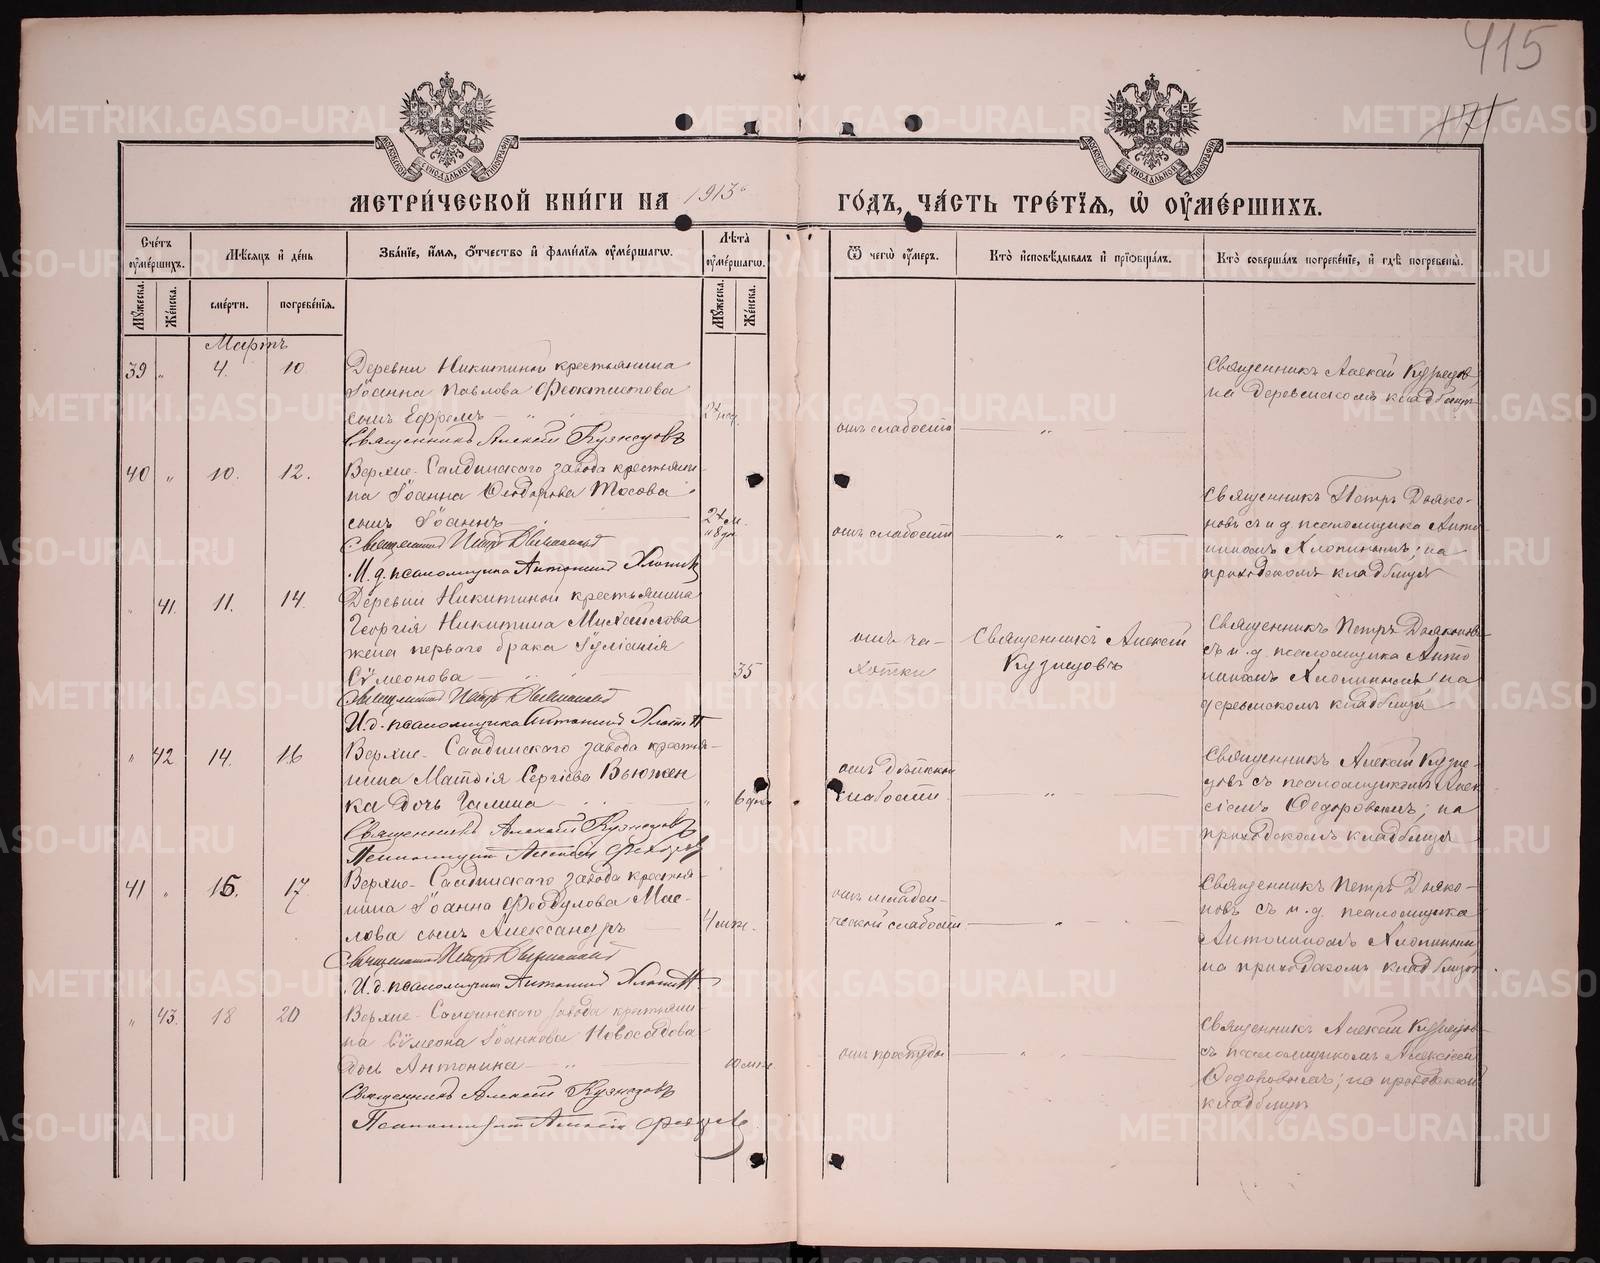 415
171
МОСКОВСКОЙ СѴНОДАЛЬНОЙ ТИПОГРАФІИ
МОСКОВСКОЙ СѴНОДАЛЬНОЙ ТИПОГРАФІИ
МЕТРИ́ЧЕСКОЙ КНИ́ГИ НА 1913 ГО́ДЪ, ЧА́СТЬ ТРЕ́ТІѦ, Ѡ҆ ОУ҆МЕ́РШИХЪ.
Сче́тъ оу҆ме́ршихъ.
Мѣ́сѧцъ и҆ де́нь
Зва́нїе, и҆́мѧ, ѻ҆́тчество и҆ фами́лїѧ оу҆ме́ршагѡ.
Лѣ́та оу҆ме́ршагѡ.
Ѿ чегѡ̀ оу҆́меръ.
Кто̀ и҆сповѣ́дывалъ и҆ прїѡбща́лъ.
Кто̀ соверша́лъ погребе́нїе, и҆ гдѣ̀ погребены̀.
Мꙋ́жеска.
Же́нска.
сме́рти.
погребе́нїѧ.
Мꙋ́жеска.
Же́нска.
Мартъ
39 " 4. 10
Деревни Никитиной крестьянина
Іоанна Павлова Феоктистова
сынъ Ефремъ
Священникъ Алексій Кузнецовъ
отъ слабости
Священникъ Алексій Кузнецовъ,
на деревенскомъ кладбищѣ
40 " 10. 12.
Верхне-Салдинскаго завода крестьяни-
на Іоанна Ѳеодорова Носова
сынъ Іоаннъ
Священникъ Петръ Дьяконовъ
И. д. псаломщика Антонинъ Хлопинъ
отъ слабости
Священникъ Петръ Дьяко-
новъ съ и д псаломщика Анто-
ниномъ Хлопинымъ; на
приходскомъ кладбищѣ
" 41. 11. 14.
Деревни Никитиной крестьянина
Георгія Никитина Михайлова
жена перваго брака Іуліанія
Сѵмеонова
35
Священникъ Петръ Дьяконовъ
И. д. псаломщика Антонинъ Хлопинъ
отъ ча-
хотки
Священникъ Алексій
Кузнецовъ
Священникъ Петръ Дьяконовъ
съ и. д. псаломщика Анто
ниномъ Хлопинымъ; на
деревенскомъ кладбищѣ
" 42 14. 16
Верхне-Салдинскаго завода крестья-
нина Матѳія Сергіева Вьюжен
ка дочь Галина
" 6 дн.
Священникъ Алексій Кузнецовъ
Псаломщикъ Алексій Федоровъ
отъ дѣтской
слабости
Священникъ Алексій Кузне-
цовъ съ псаломщикомъ Алек-
сіемъ Ѳедоровымъ; на
приходскомъ кладбищѣ
41 " 15. 17
Верхне-Салдинскаго завода крестья-
нина Іоанна Ѳеодулова Мас-
лова сынъ Александръ
4 мѣс.
Священникъ Петръ Дьяконовъ
И. д. псаломщика Антонинъ Хлопинъ
отъ младен-
ческой слабости
Священникъ Петръ Дьяко-
новъ съ и. д. псаломщика
Антониномъ Хлопинымъ
на приходскомъ кладбищѣ
" 43. 18 20
Верхне-Салдинскаго завода крестьяни-
на Сѵмеона Іоаннова Новосадова
дочь Антонина
10 мѣс
Священникъ Алексій Кузнецовъ
Псаломщикъ Алексій Федоровъ
отъ простуды
Священникъ Алексій Кузнецовъ
съ псаломщикомъ Алексіемъ
Ѳедоровымъ; на приходскомъ
кладбищѣ
METRIKI.GASO-URAL.RU